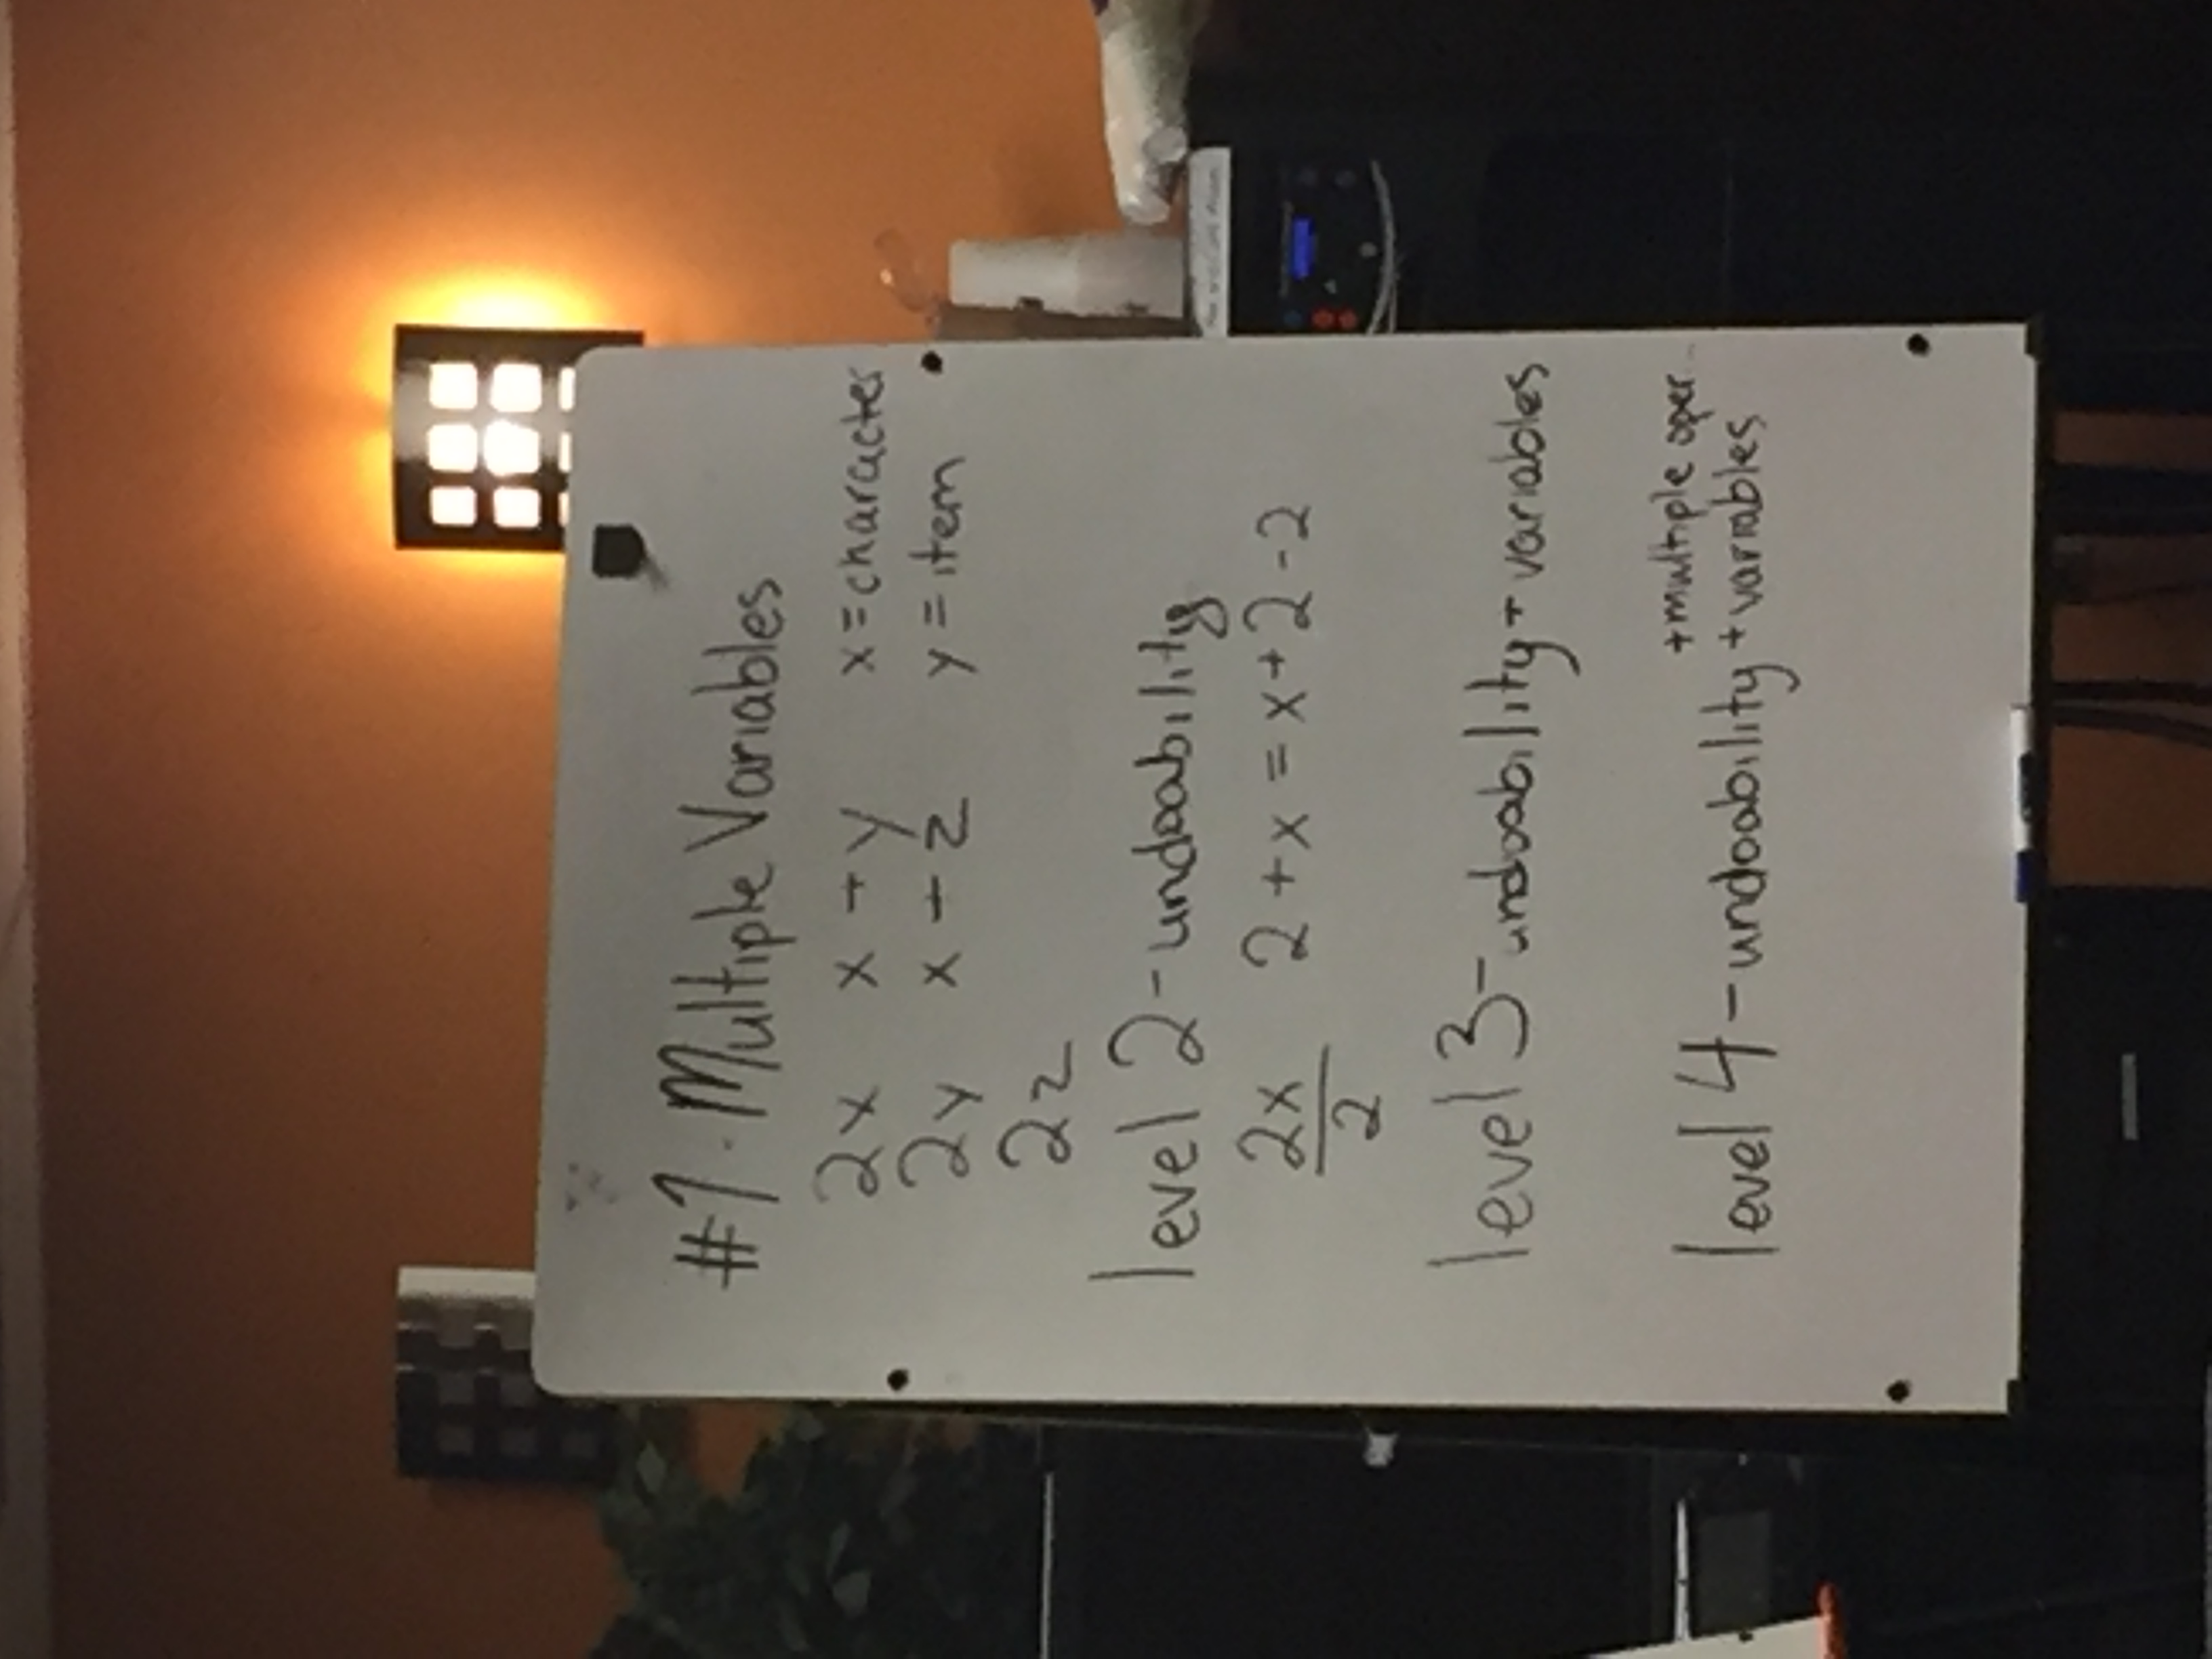 #1 - Multiple Variables
2x x + y x = character
2y x - z y = item
2z
level 2 - undoability
2x 2 + x = x + 2 - 2
2
level 3 - undoability + variables
+ multiple oper...
level 4 - undoability + variables